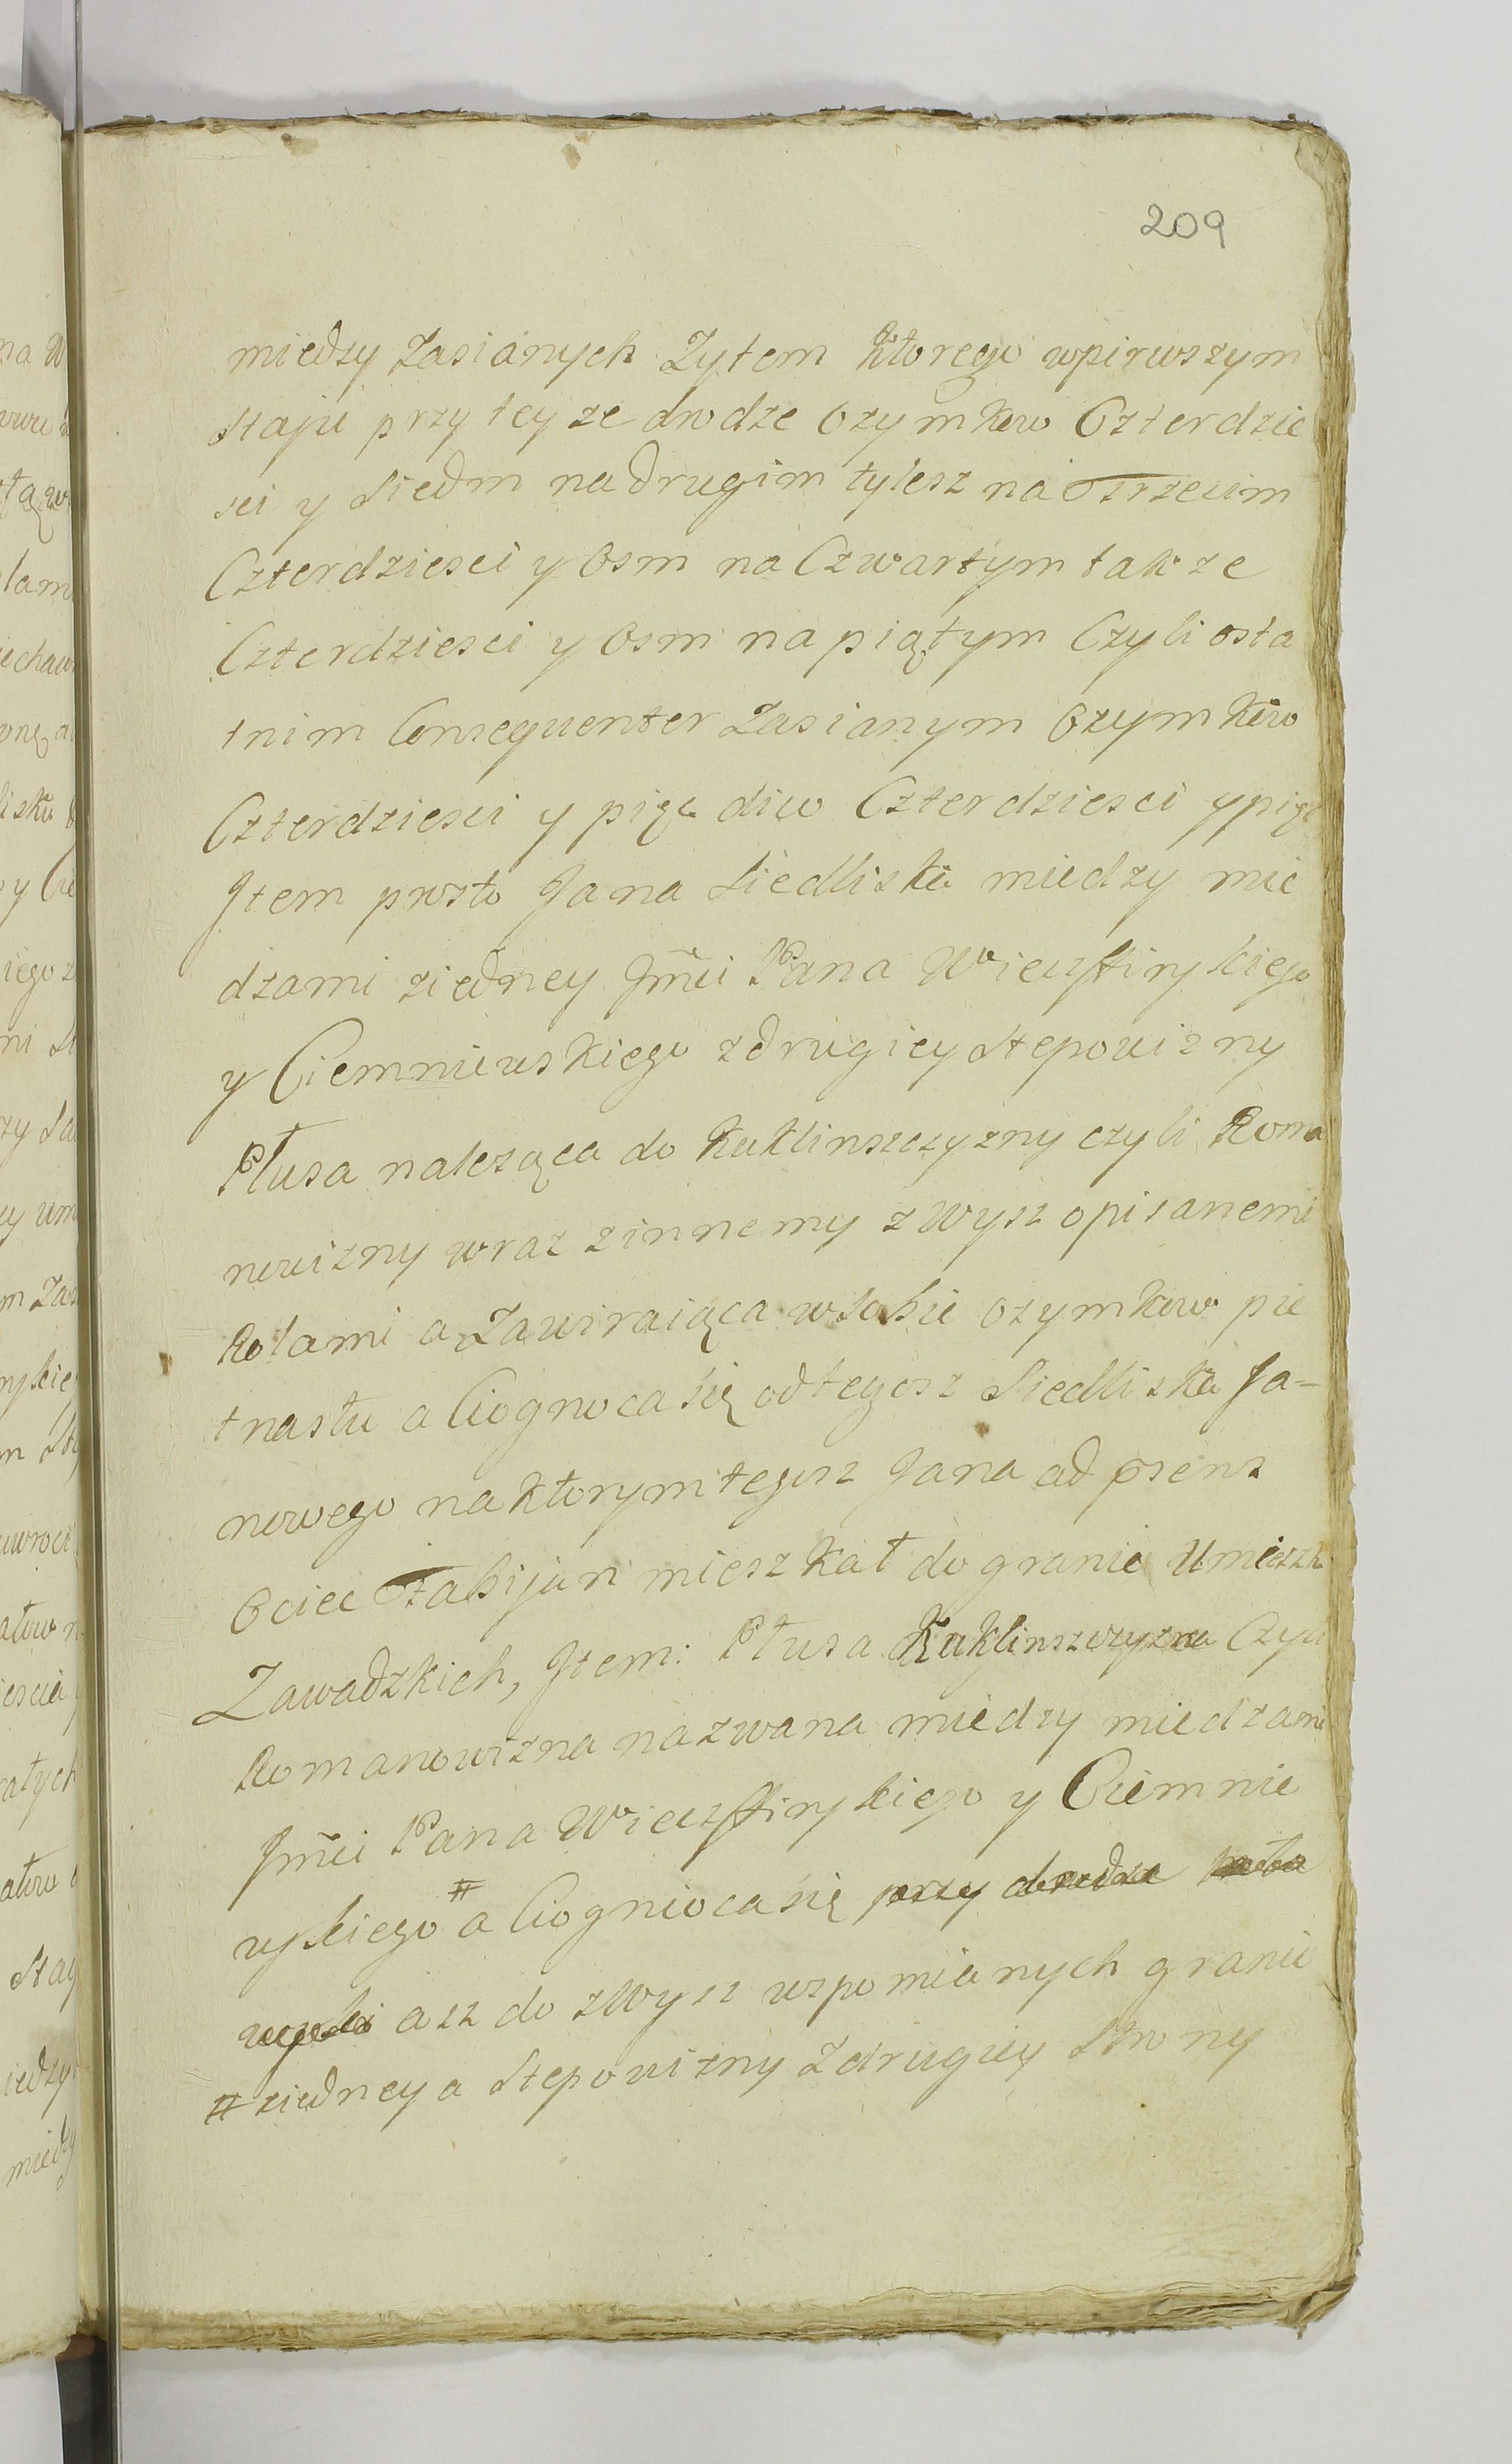 209
miedzy Zasianych Zytem Ktorego wpirwszym
staju przy teyze drodze Ozymkow Czterdzie
sci y siedm nadrugim tylesz na Trzecim
Czterdziesci y Osm na Czwartym takze
Czterdziesci y Osm na piątym Czyli osta
tnim Consequenter Zasianym Ozymkow
Czterdziesci y pięc dico Czterdziesci y pięc
Jtem prosto Jana Siedliska miedzy mie
dzami ziedney Jmci Pana Wieczffinskiego
y Ciemniewskiego zdrugiey Stepowizny
Płusa naleząca do Kuklinszczyzny czyli Roma
nowizny wraz zinnemy zwysz opisanemi
Rolami a Zawiraiąca wsobie ozymkow pie
tnastu a Ciognoca się odtegosz Siedliska Ja=
nowego naktorym tegosz Jana ad psens
Ociec Fabijan mieszkał do granic Umieszk
Zawadzkich, Jtem: Płusa Kuklinszczyzna Czyli
Romanowizna nazwana miedzy miedzami
Jmci Pana Wieczffinskiego y Ciemnie
wskiego # a Ciognioca się przy drodze
asz do zwysz wspomianych granic
# ziedney a Stepowizny zdrugiey Strony